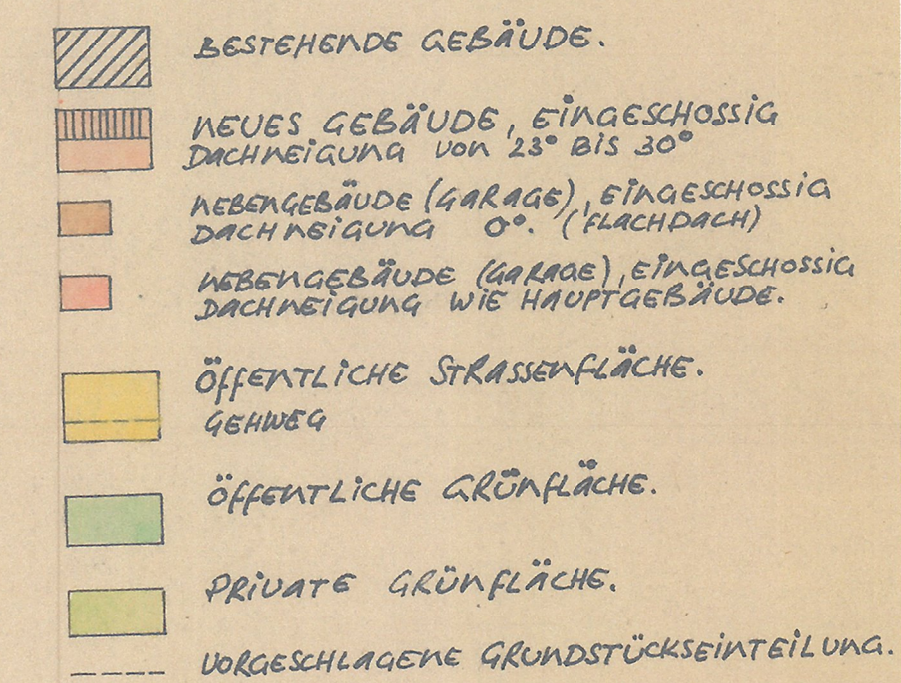 BESTEHENDE GEBÄUDE.
NEUES GEBÄUDE, EINGESCHOSSIG
DACHNEIGUNG VON 23° BIS 30°
NEBENGEBÄUDE (GARAGE), EINGESCHOSSIG
DACHNEIGUNG 0°. (FLACHDACH)
NEBENGEBÄUDE (GARAGE), EINGESCHOSSIG
DACHNEIGUNG WIE HAUPTGEBÄUDE.
ÖFFENTLICHE STRASSENFLÄCHE.
GEHWEG
ÖFFENTLICHE GRÜNFLÄCHE.
PRIVATE GRÜNFLÄCHE.
VORGESCHLAGENE GRUNDSTÜCKSEINTEILUNG.